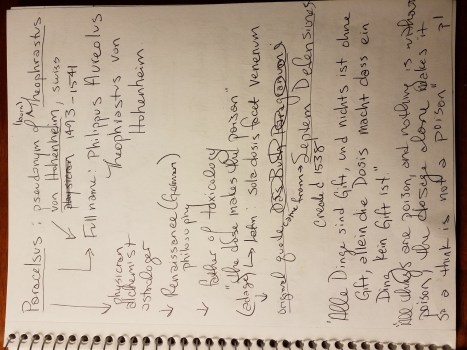 Paracelsus: pseudonym of Theophrastus
(born)
von Hohenheim, swiss
physician 1493-1541
Full name: Philippus Aureolus
Theophrastus von
Hohenheim
physician
alchemist
astrologer
Renaissance (German)
philosophy
Father of toxicology
"the dose makes the poison"
(adage) → Latin: sola dosis facet venenum
original quote
came from → Septem Defensiones
created 1538
"Alle Dinge sind Gift, und nichts ist ohne
Gift, allein die Dosis macht dass ein
Ding kein Gift ist."
"All things are poison, and nothing is without
poison, the dosage alone makes it
so a think is not a poison"
p1